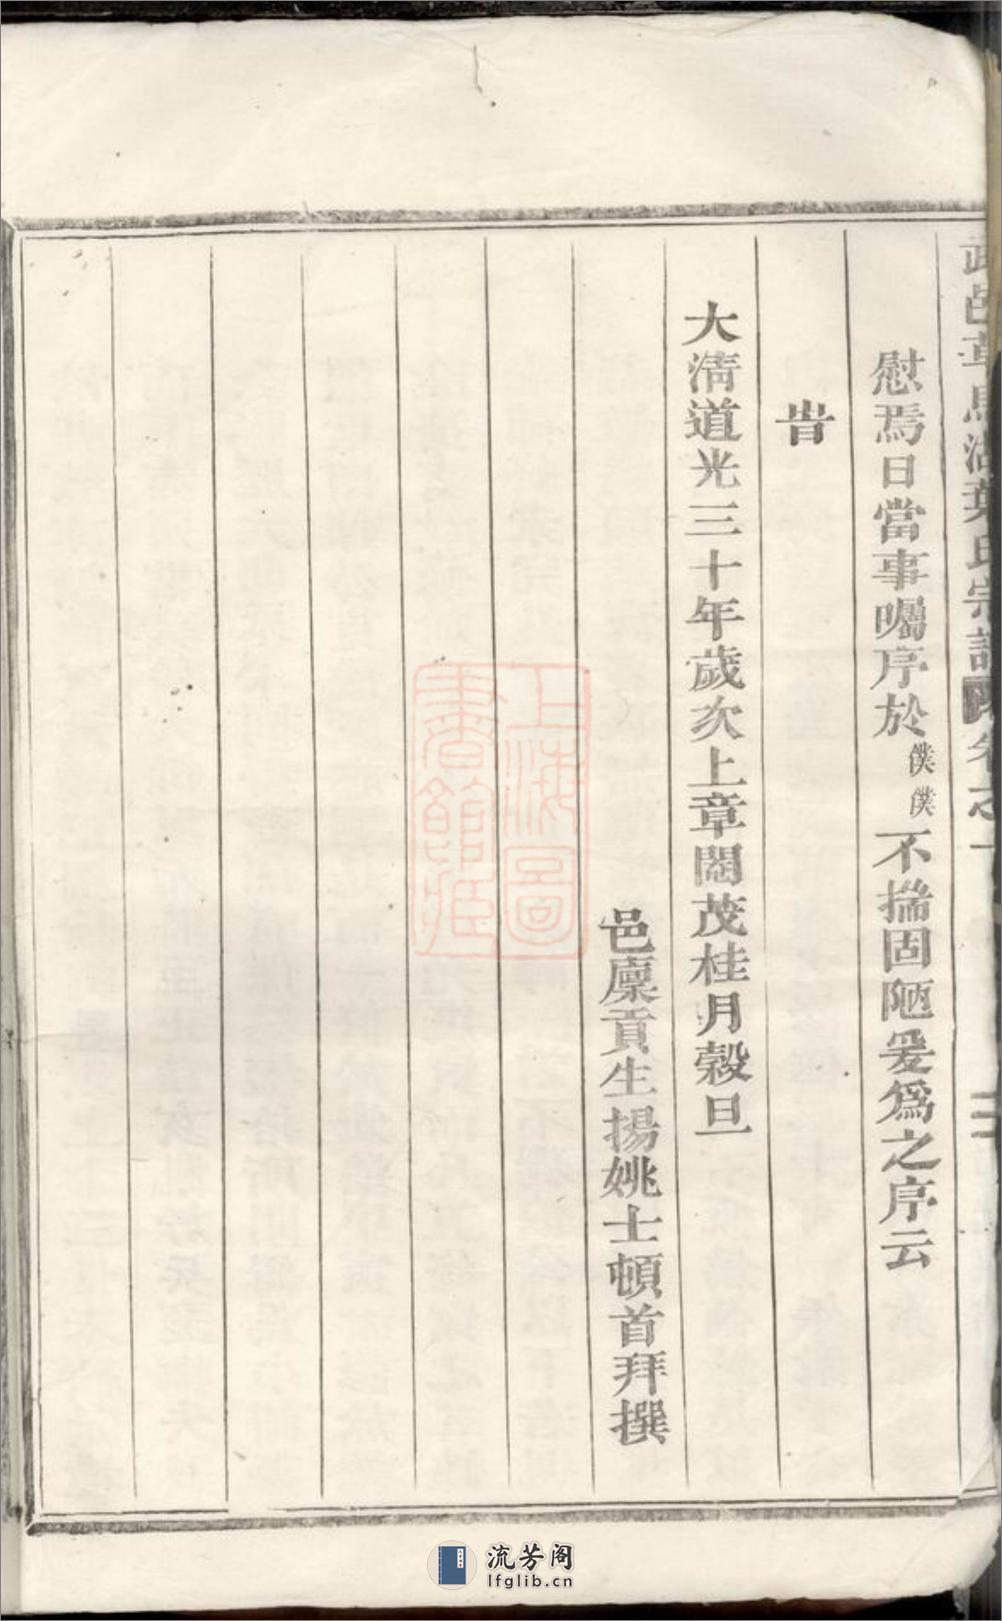 慰焉日當事囑序於僕僕不揣固陋爰爲之序云
旹
大清道光三十年歲次上章閹茂桂月穀旦
邑廩貢生揚姚士頓首拜撰
葉氏宗譜
卷之一
上海圖書館藏
流芳阁
lfglib.cn